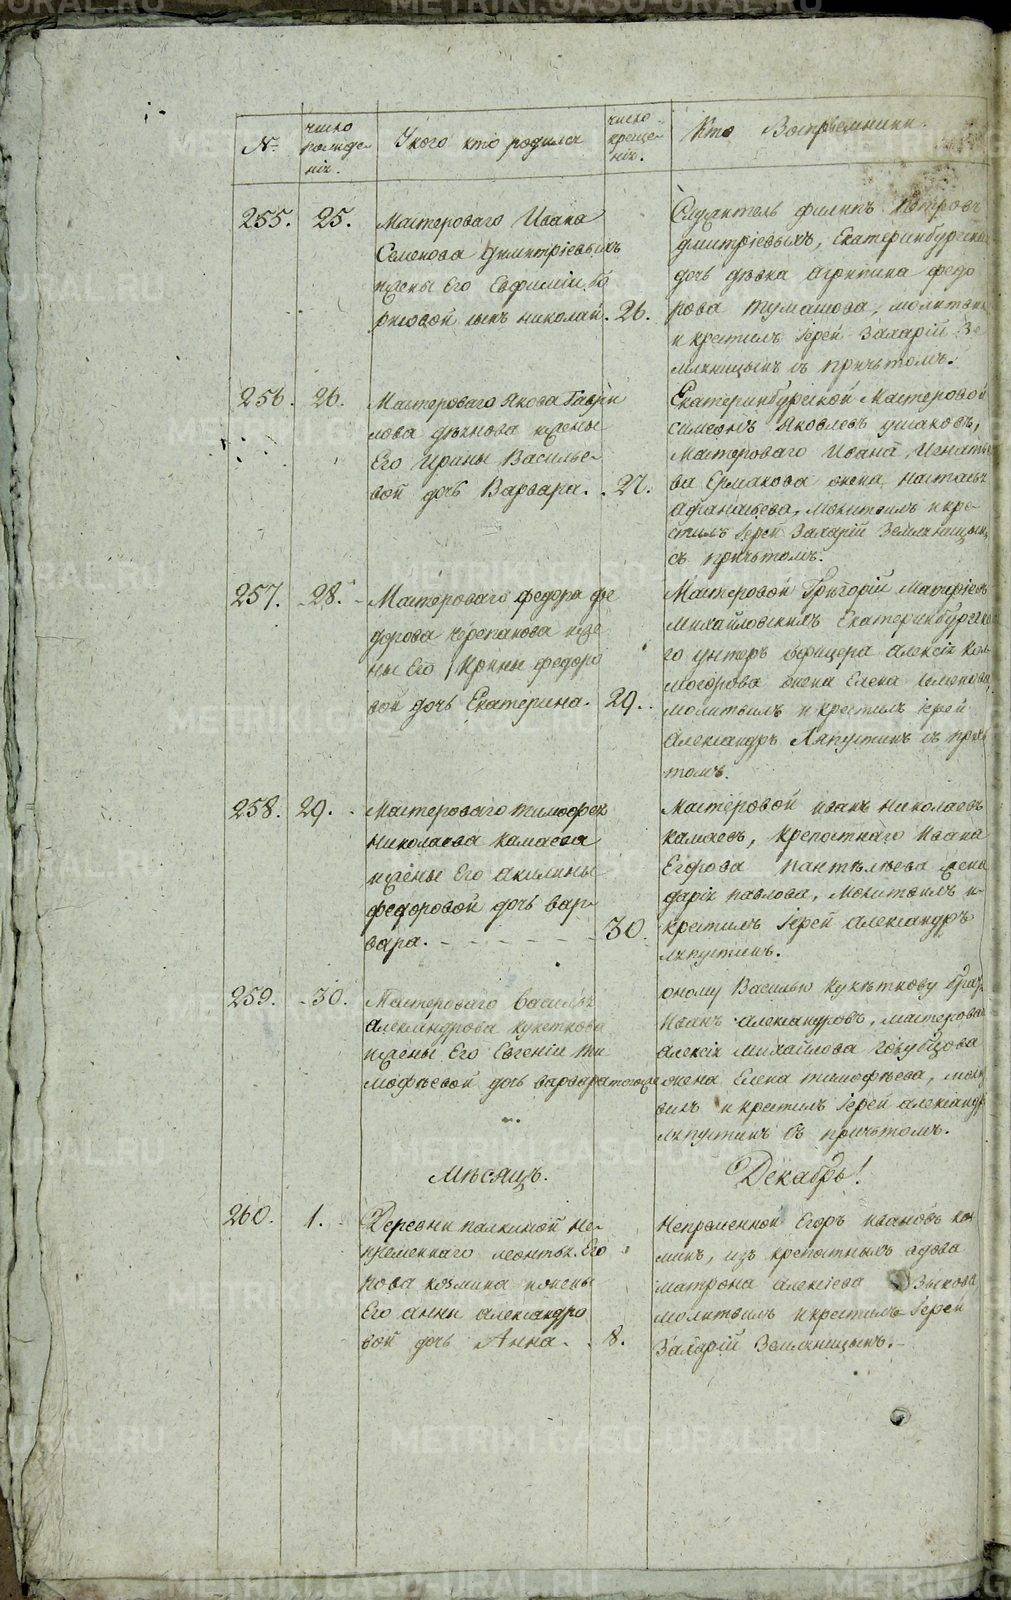 METRIKI.GASO-URAL.RU
№
число рожде-
нія.
У кого кто родился
число креще-
нія.
Кто Воспріемники.
255. 25.
Мастероваго Ивана
Семенова Димитріевыхъ
жены Его Евфиміи Бо
рисовой сынъ николай. 26.
филипъ Петровъ
димитріевыхъ, Екатеринбургская
дочь дѣвка Агрипина федо
рова Тумашова, молитвилъ
и крестилъ Іерей Захарій Зе
мляницынъ съ причьтомъ.
256. 26.
Мастероваго Якова Гаври
лова жены
Его Ирины Василье-
вой дочь Варвара. 27.
Екатеринбургской Мастеровой
симеонъ Яковлевъ ушаковъ,
Мастероваго Ивана Игнатье
ва Ермакова жена настасья
Афанасьева, молитвилъ и кре-
стилъ Іерей Захарій Земляницынъ
съ причьтомъ.
257. 28.
Мастероваго федора фе
дорова черепанова же
ны Его Ирины федоро
вой дочь Екатерина. 29.
Мастеровой Григорій
Михайловскихъ Екатеринбургска
го унтеръ офицера Алексія Кол
могорова жена Елена
молитвилъ и крестилъ Іерей
Александръ Ляпустинъ съ причь
томъ.
258. 29.
Мастероваго тимофея
Николаева камаева
жены Его акилины
федоровой дочь вар-
вара. 30
Мастеровой иванъ николаевъ
камаевъ, крепостнаго Ивана
Егорова пантѣлѣева жена
дарія павлова, Молитвилъ и
крестилъ Іерей александръ
ляпустинъ.
259. 30.
Мастероваго Василья
Александрова кукеткова
жены Его Евгеніи ти
мофѣевой дочь варвара тогоже
оному Василью Кукѣткову братъ
Иванъ александровъ, мастероваго
алексія михайлова Голубцова
жена Елена тимофѣева, молит
вилъ и крестилъ Іерей александръ
ляпустинъ съ причьтомъ.
Мѣсяцъ.
Декабрь!
260. 1.
Деревни палкиной не-
премѣннаго леонтья Его
рова козмина жены
Его анны александро
вой дочь Анна. 8.
Непремѣнной Егоръ ивановъ ко
минъ, изъ крепостныхъ вдова
матрона алексіева Зыкова
молитвилъ и крестилъ Іерей
Захарій Земляницынъ.